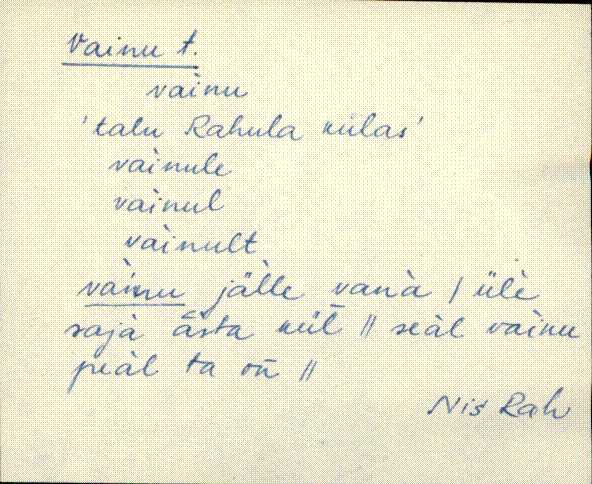 Vainu t.
vaìnu
'talu Rahula külas'
vaìnule
vaìnul
vaìnult
vaìnu jälle vanà / ülè
sajà āsta kül̄ // seàl vaìnu
peàl ta on̄ //
Nis Rah